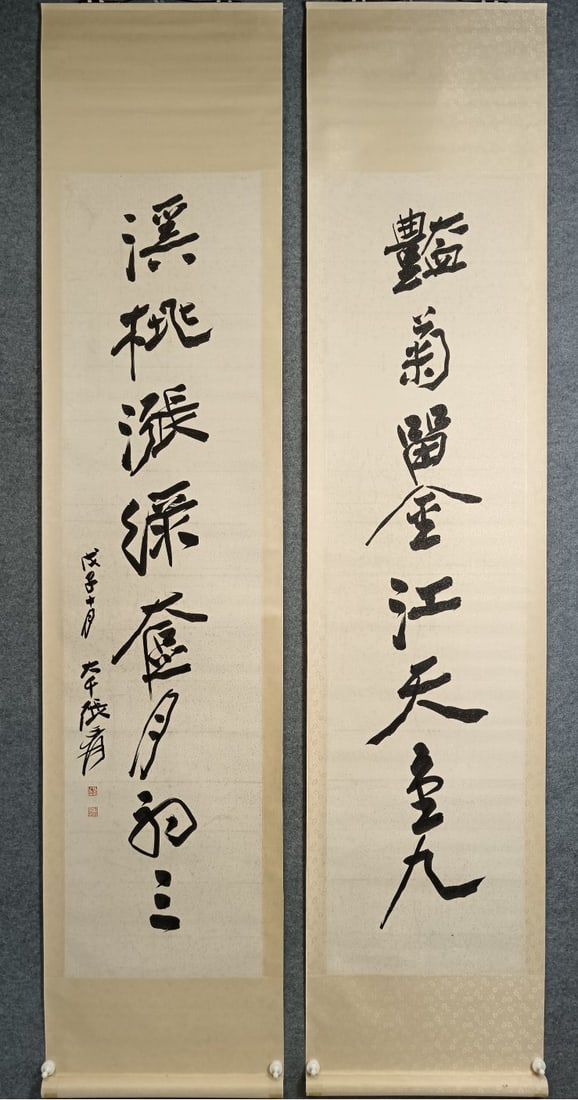 豔菊留金江天重九
溪桃漲綠奩月初三
戊子十月 大千張爰